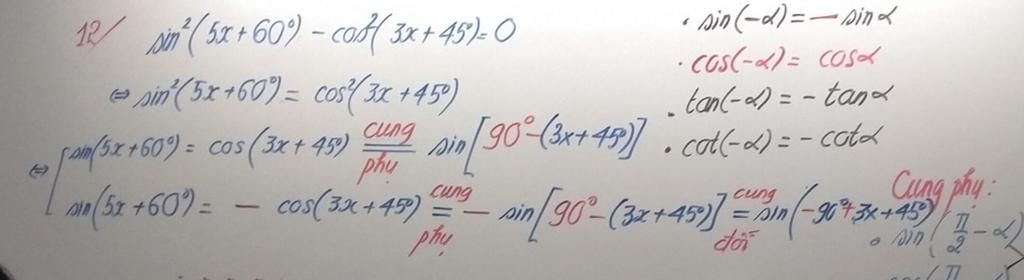 12/ sin²(5x+60°) - cos²(3x+45°)=0
⇔ sin²(5x+60°) = cos²(3x+45°)
⇔ [ sin(5x+60°) = cos(3x+45°) cung = phụ sin[90°-(3x+45°)]
sin(5x+60°) = - cos(3x+45°) cung = phụ - sin[90°-(3x+45°)] cung = đối sin(-90°+3x+45°)
• sin(-α) = - sinα
• cos(-α) = cosα
• tan(-α) = - tanα
• cot(-α) = - cotα
Cung phụ:
• sin(π/2 - α)